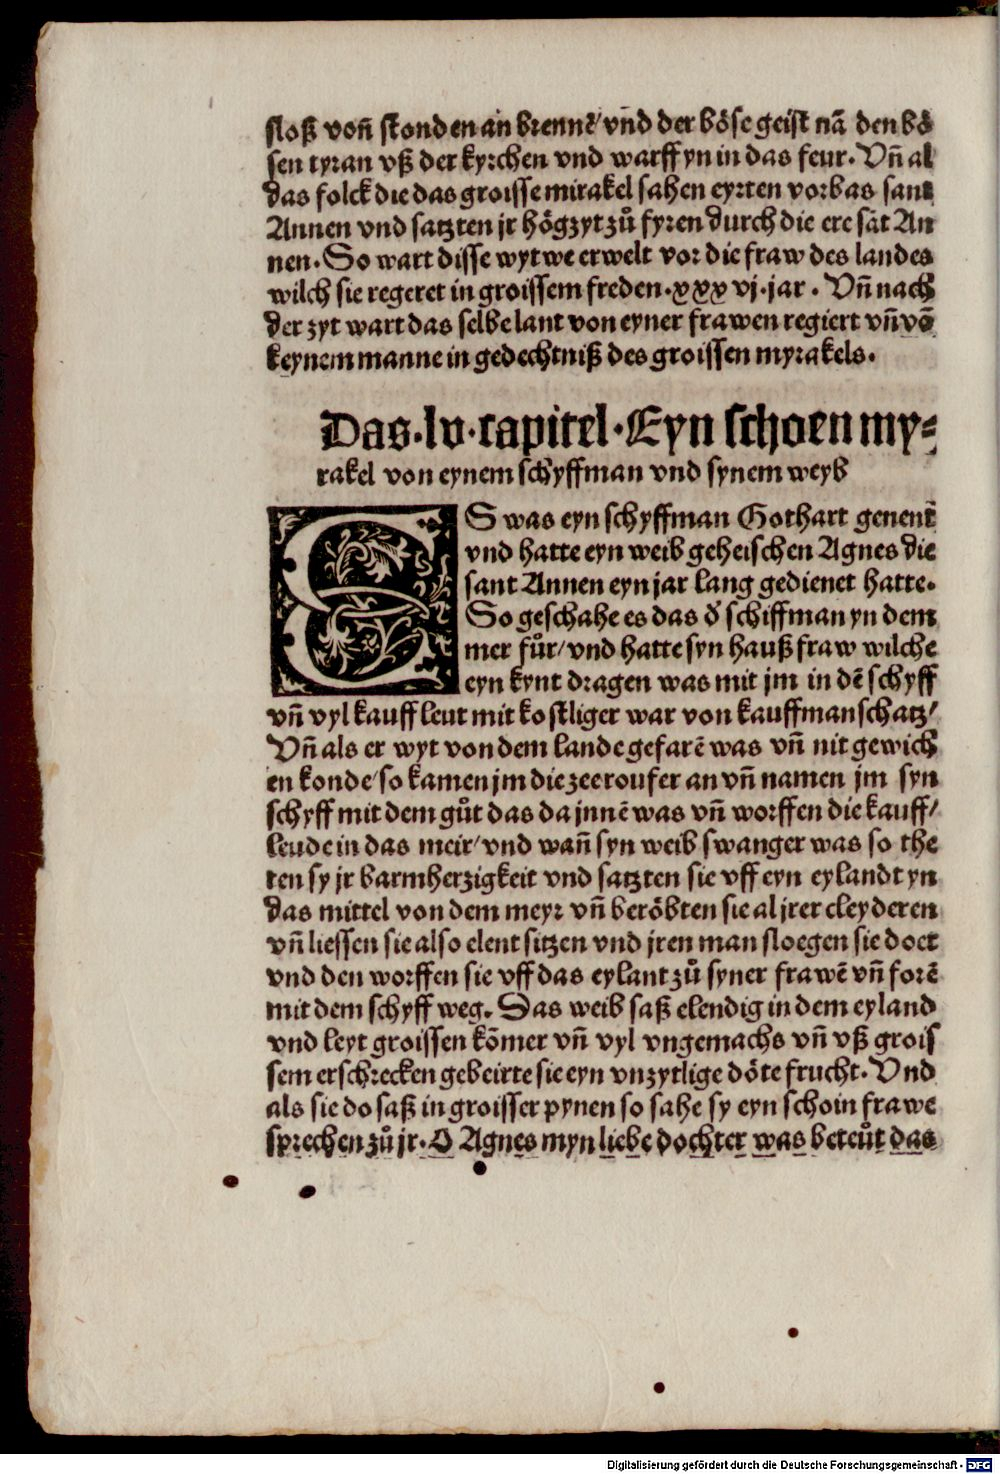 sloß voñ stonden an brennē/ vnd der böse geist nā den bö
sen tyran vß der kyrchen vnd warff yn in das feur. Vñ al
das folck die das groisse mirakel sahen eyrten vorbas sant
Annen vnd satzten jr högzyt zů fyren durch die ere sāt An
nen. So wart disse wytwe erwelt vor die fraw des landes
wilch sie regeret in groissem freden. xxxvj. jar. Vñ nach
der zyt wart das selbe lant von eyner frawen regiert vñ vō
keynem manne in gedechtniß des groissen myrakels.
Das. lv. capitel. Eyn schoen my⸗
rakel von eynem schyffman vnd synem weyb
ES was eyn schyffman Gothart genent̄
vnd hatte eyn weib geheischen Agnes die
sant Annen eyn jar lang gedienet hatte.
So geschahe es das d̓ schiffman yn dem
mer fůr/ vnd hatte syn hauß fraw wilche
eyn kynt dragen was mit jm in dē schyff
vñ vyl kauffleut mit kostliger war von kauffmanschatz/
Vñ als er wyt von dem lande gefarē was vñ nit gewich
en konde/ so kamen jm die zeeroufer an vñ namen jm syn
schyff mit dem gůt das da jnnē was vñ worffen die kauff/
leude in das meir/ vnd wañ syn weib swanger was so the
ten sy jr barmherzigkeit vnd satzten sie vff eyn eylandt yn
das mittel von dem meyr vñ beröbten sie al jrer cleyderen
vñ liessen sie also elent sitzen vnd jren man sloegen sie doet
vnd den worffen sie vff das eylant zů syner frawē vñ forē
mit dem schyff weg. Das weib saß elendig in dem eyland
vnd leyt groissen kōmer vñ vyl vngemachs vñ vß grois
sem erschrecken gebeirte sie eyn vnzytlige döte frucht. Vnd
als sie do saß in groisser pynen so sahe sy eyn schoin frawe
sprechen zů jr. O Agnes myn liebe dochter was beteůt das
Digitalisierung gefördert durch die Deutsche Forschungsgemeinschaft - DFG